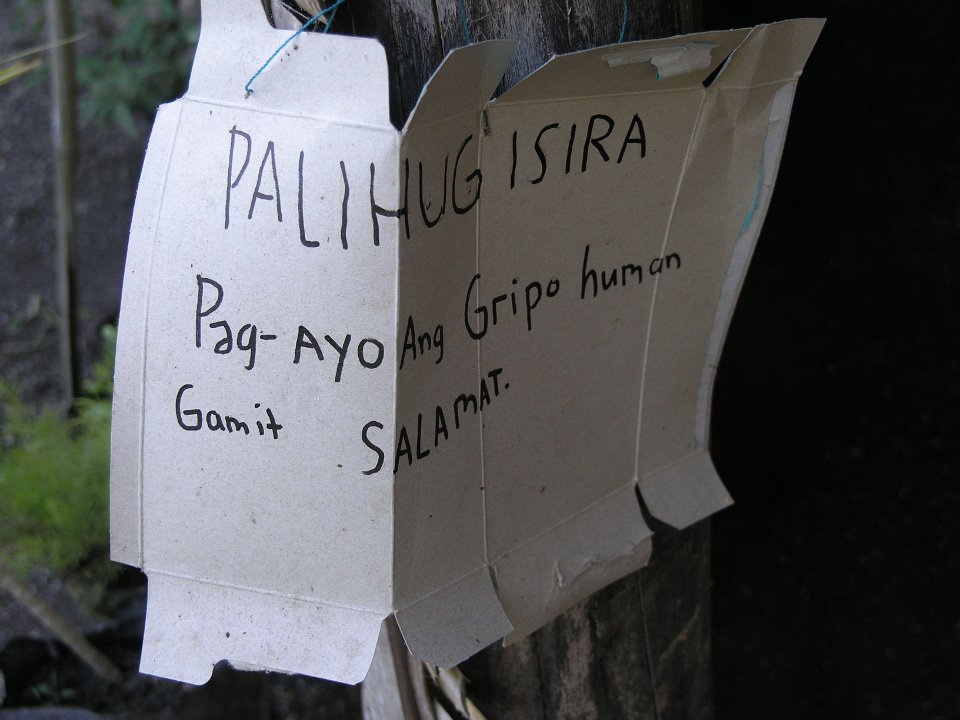 PALIHUG ISIRA
Pag-AYO Ang Gripo human
Gamit SALAMAT.